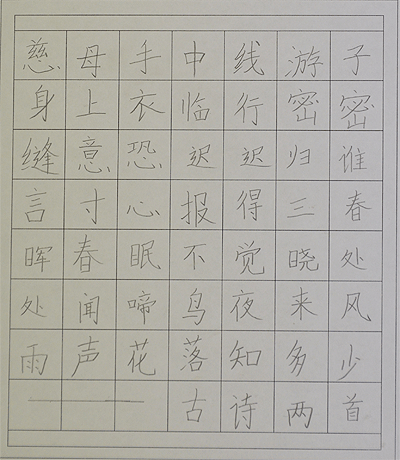 慈母手中线游子
身上衣临行密密
缝意恐迟迟归谁
言寸心报得三春
晖春眠不觉晓处
处闻啼鸟夜来风
雨声花落知多少
——古诗两首